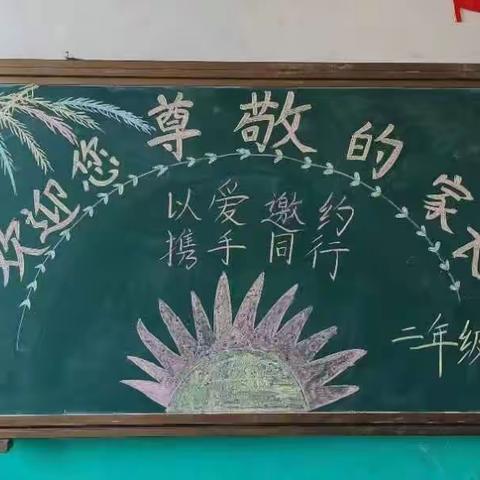 欢迎您尊敬的家长
以爱邀约
携手同行
二年级